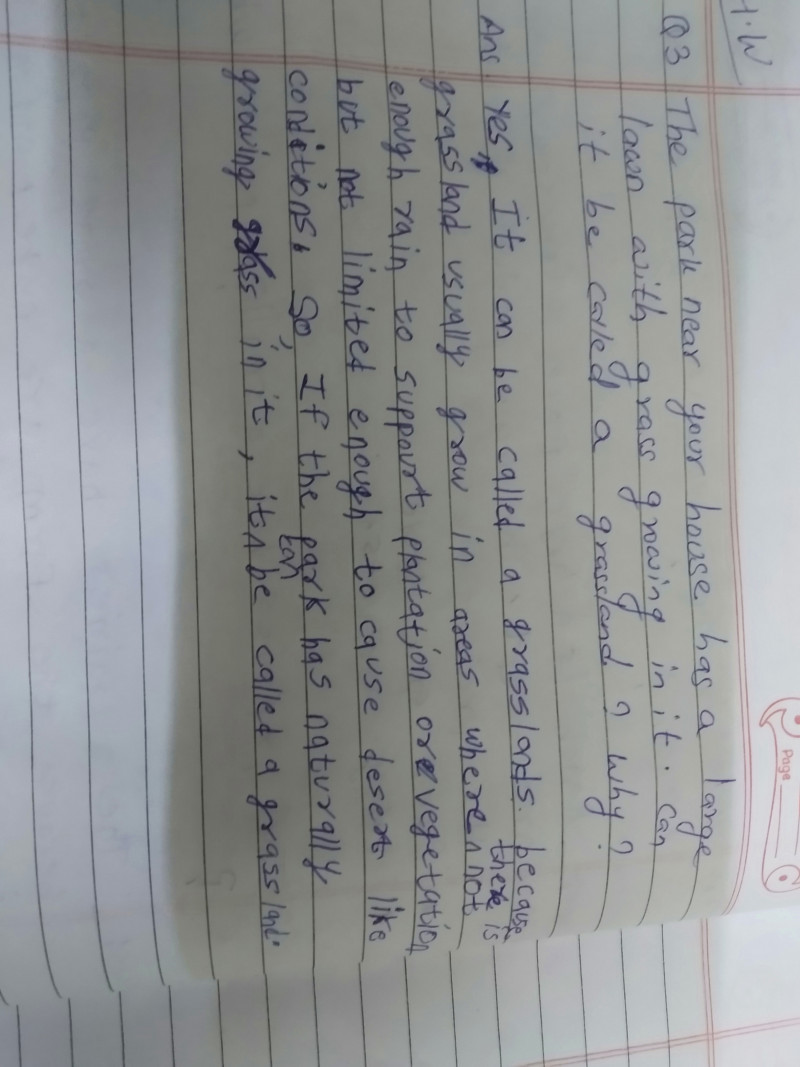 H.W
Page
Q3 The park near your house has a large
lawn with grass growing in it. can
it be called a grassland? why?
Ans. Yes, It can be called a grasslands. because
grassland usually grow in areas where there is not
enough rain to support plantation or vegetation
but not limited enough to cause desert like
conditions, So, If the park has naturally
growing grass in it, it can be called a grassland.